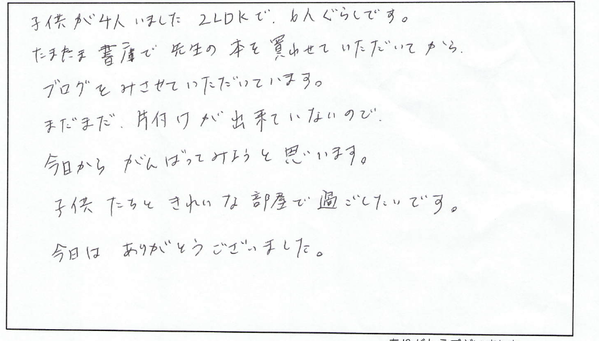 子供が4人いました 2LDKで、6人ぐらしです。
たまたま 書店で 先生の 本を 買わせて いただいて から、
ブログを みさせて いただいています。
まだまだ、片付けが 出来て いない ので、
今日から がんばって みようと 思います。
子供 たちと きれいな 部屋で 過ごしたい です。
今日は ありがとう ございました。